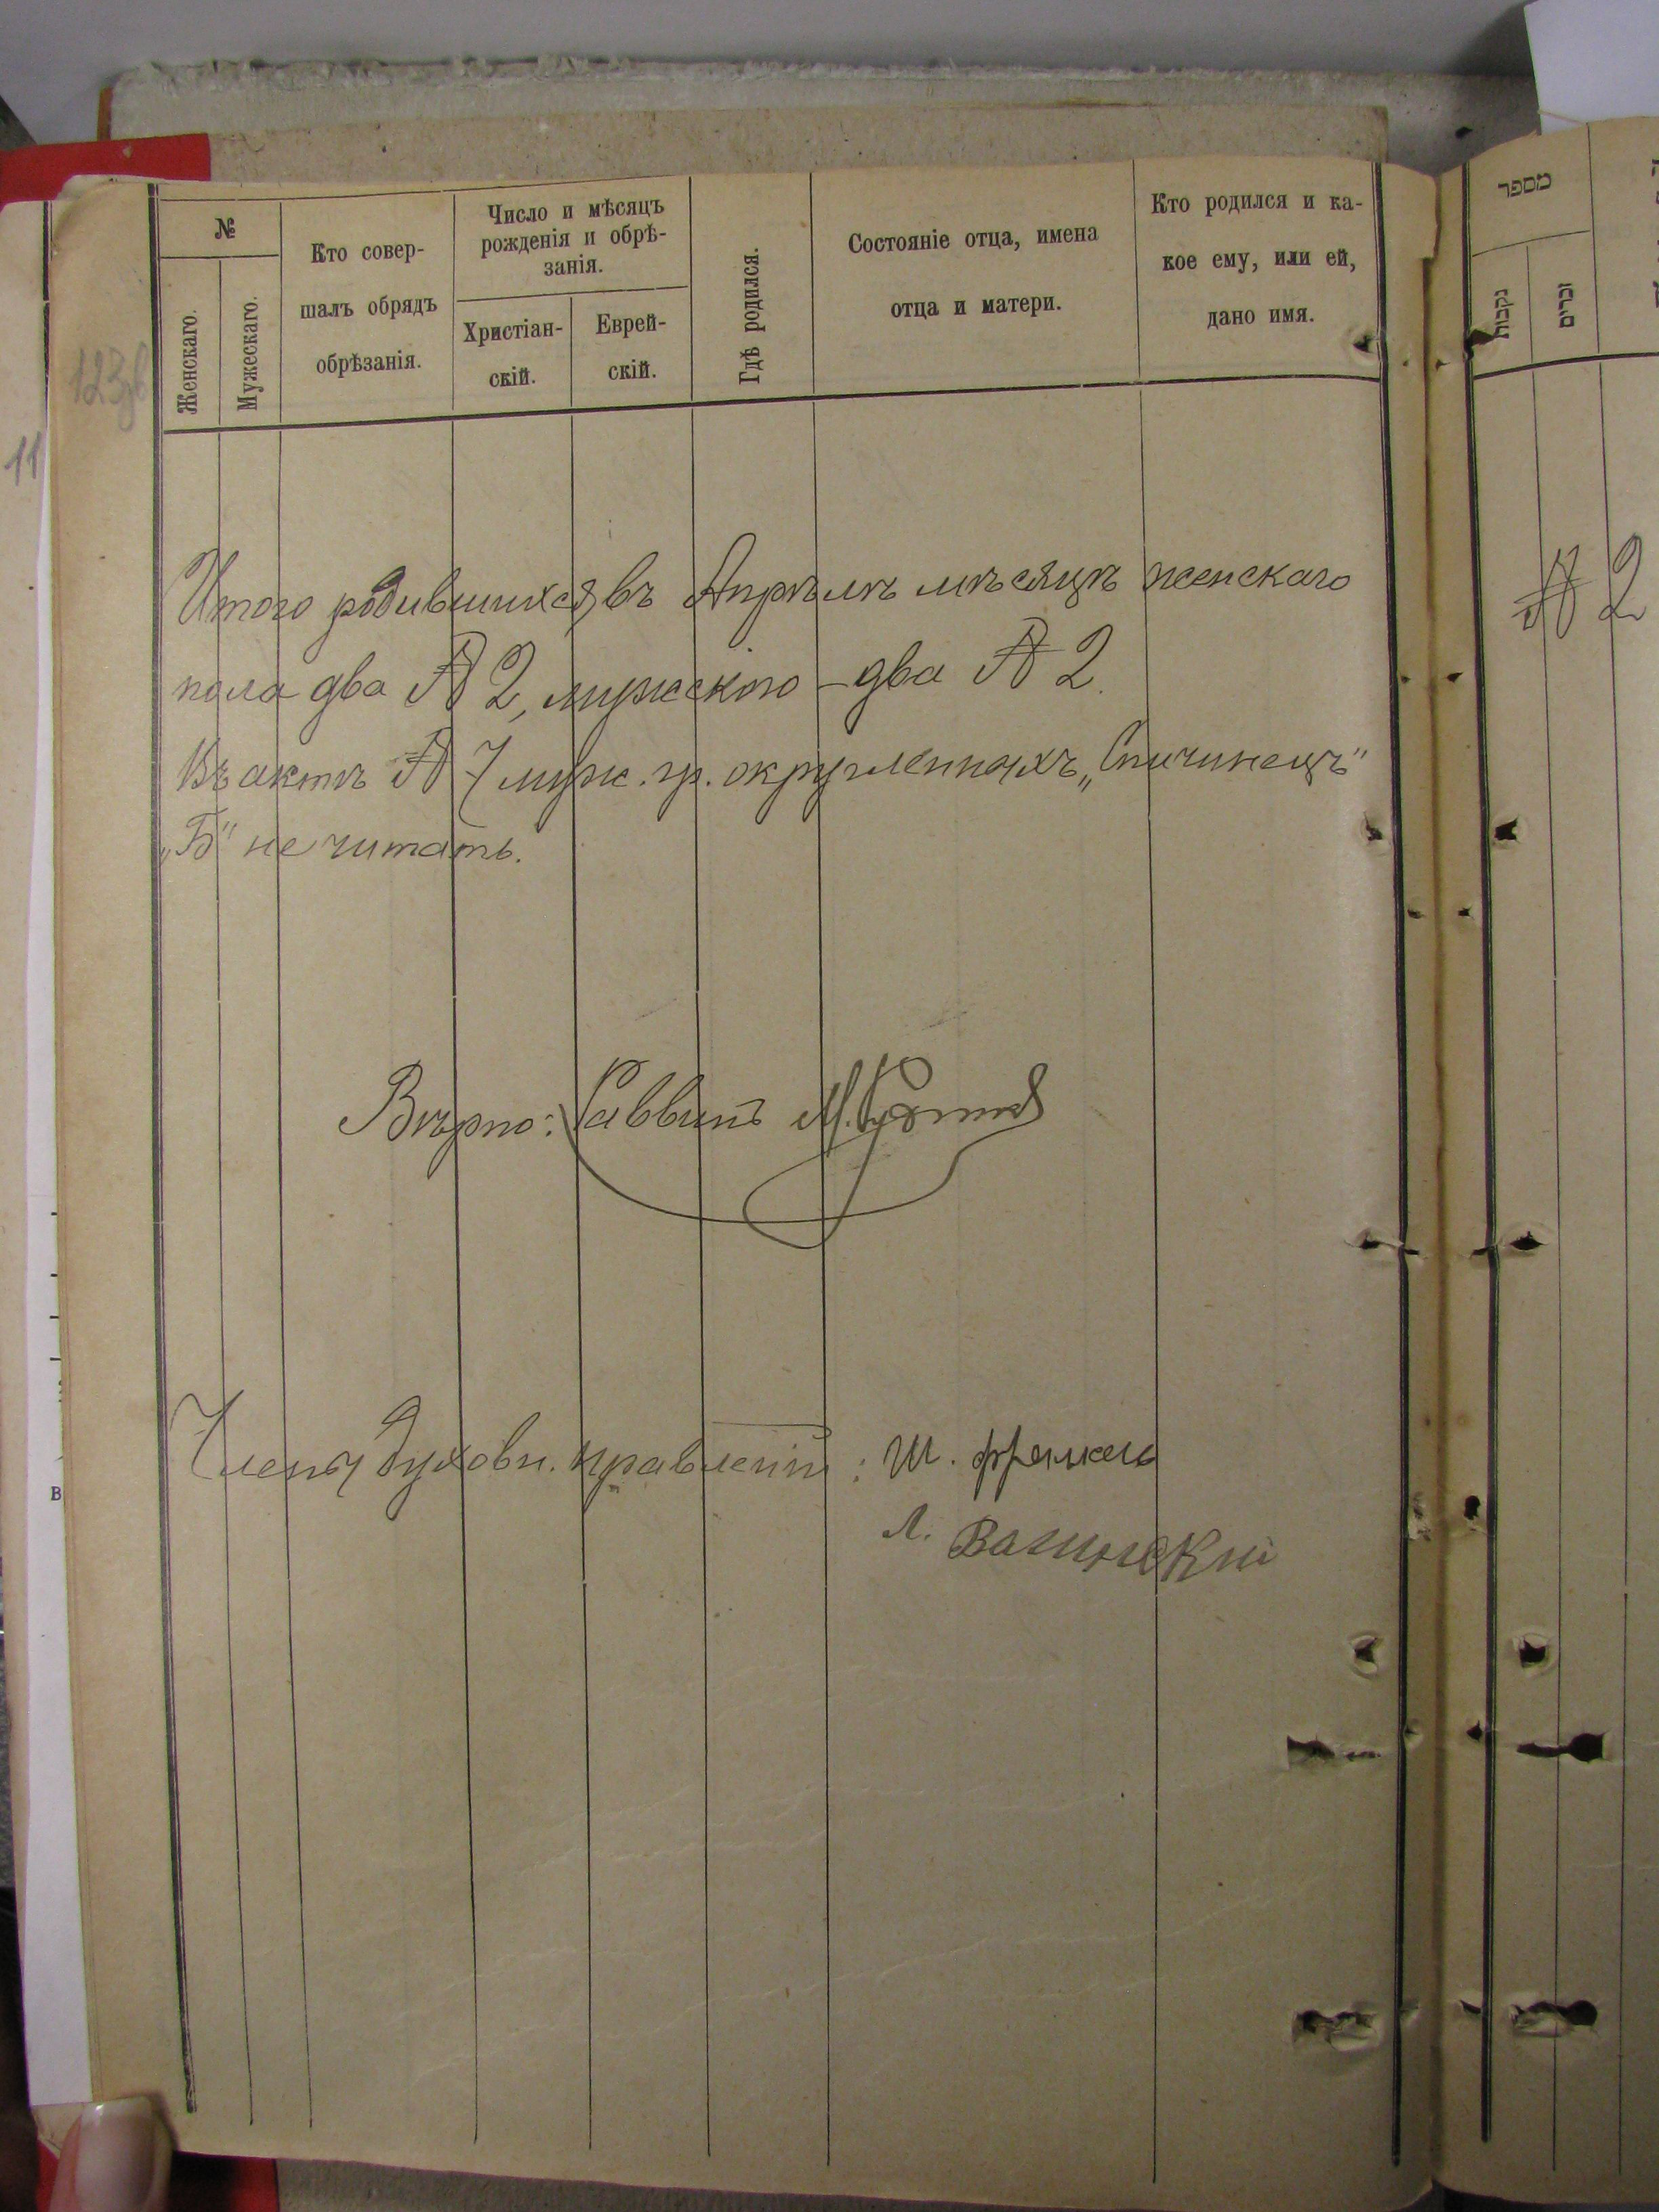 №
Женскаго.
Мужескаго.
Кто совер-
шалъ обрядъ
обрѣзанія.
Число и мѣсяцъ
рожденія и обрѣ-
занія.
Христіан-
скій.
Еврей-
скій.
Гдѣ родился.
Состояніе отца, имена
отца и матери.
Кто родился и ка-
кое ему, или ей,
дано имя.
123об
11
Итого родившихся въ Апрѣлѣ мѣсяцѣ женскаго
пола два № 2, мужского – два № 2.
Въ актѣ № 7 муж. гр. округленнахъ „Спичинецъ"
„Б" не читать.
Вѣрно: Раввинъ М.
Члены духовн. правленій: Ш. Френкель
Л.
מספר
נקבות
זכרים
№ 2